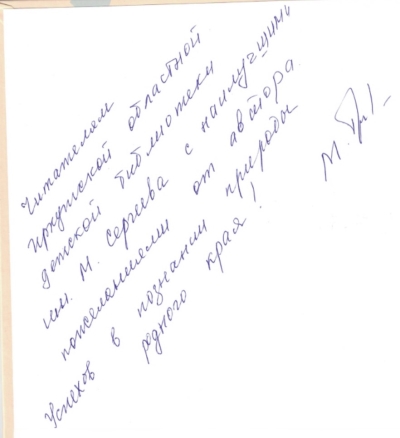 Читателям
Иркутской областной
детской библиотеки
им. М. Сергеева с наилучшими
пожеланиями от автора.
Успехов в познании природы
родного края!
М.